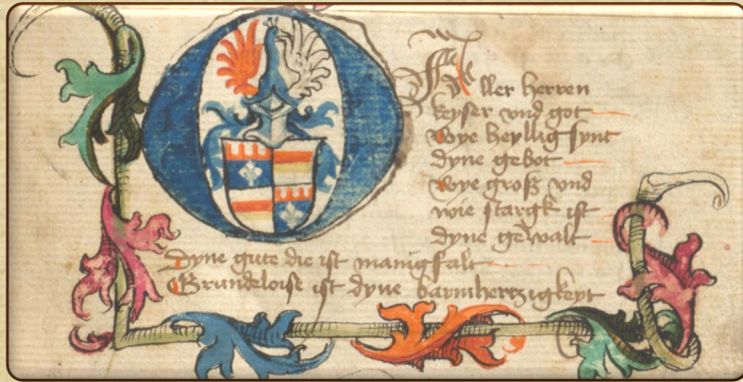 O Aller herren
keyser vnd got
wye heyllig synt
dyne gebot
wye groß vnd
wie stargk ist
dyne gewalt
Dyne gute die ist manigfalt
Grundeloise ist dyne barmhertzigkeyt